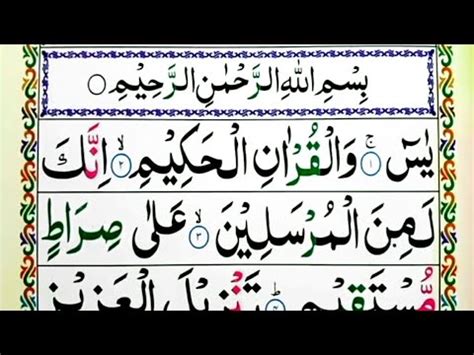 بِسْمِ اللهِ الرَّحْمٰنِ الرَّحِيْمِ ○
يٰسٓ ۚ ۝١ وَالْقُرْاٰنِ الْحَكِيْمِ ۙ ۝٢ اِنَّكَ
لَمِنَ الْمُرْسَلِيْنَ ۙ ۝٣ عَلٰى صِرَاطٍ
مُّسْتَقِيْمٍ ؕ ۝٤ تَنْزِيْلَ الْعَزِيْزِ